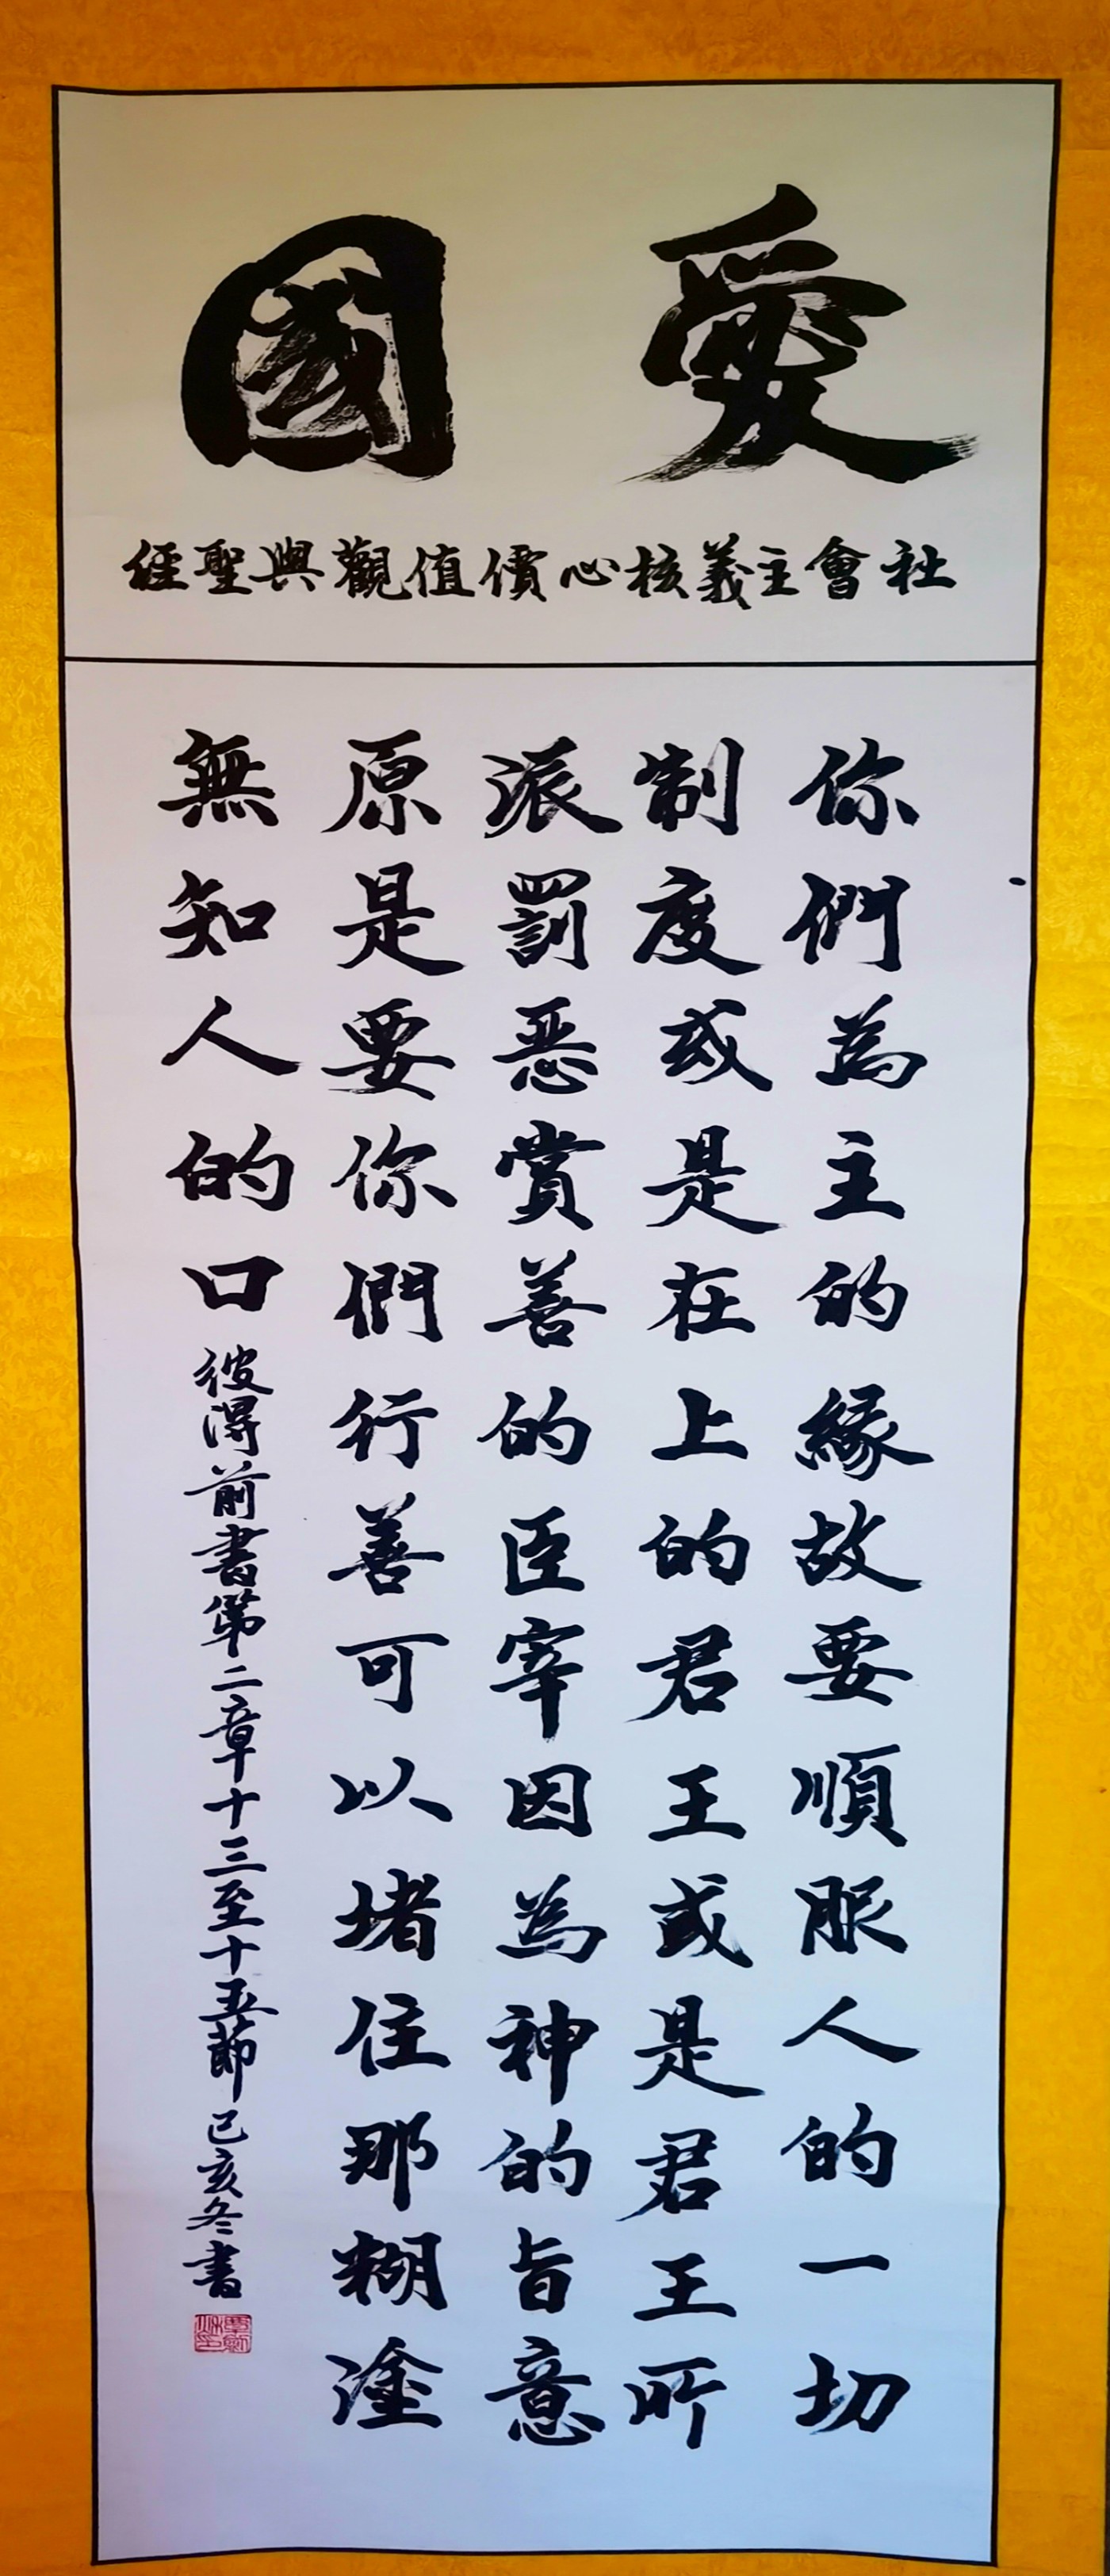 愛國
社會主義核心價值觀與聖經
你們為主的緣故要順服人的一切
制度或是在上的君王或是君王所
派罰惡賞善的臣宰因為神的旨意
原是要你們行善可以堵住那糊塗
無知人的口
彼得前書第二章十三至十五節己亥冬書